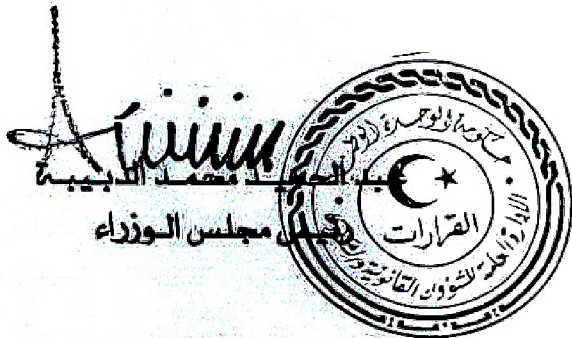 عبد الحميد محمد الدبيبة
رئيس مجلس الوزراء
حكومة الوحدة الوطنية
الإدارة العامة للشؤون القانونية
القرارات